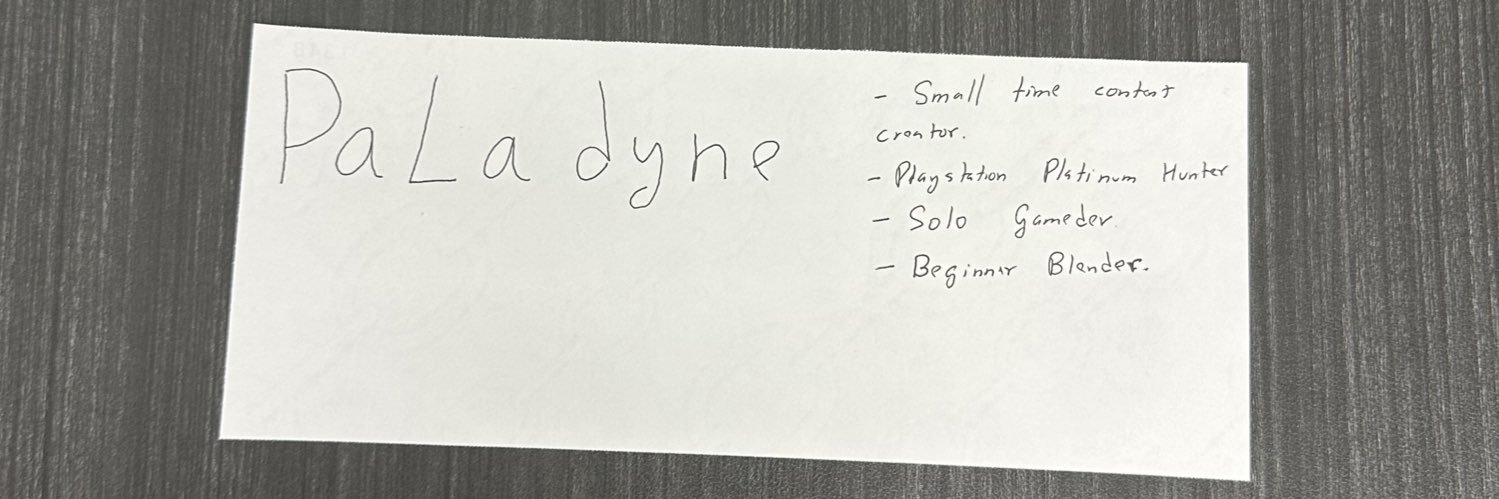 PaLadyne
- Small time content
creator.
- Playstation Platinum Hunter
- Solo Gamedev
- Beginner Blender.